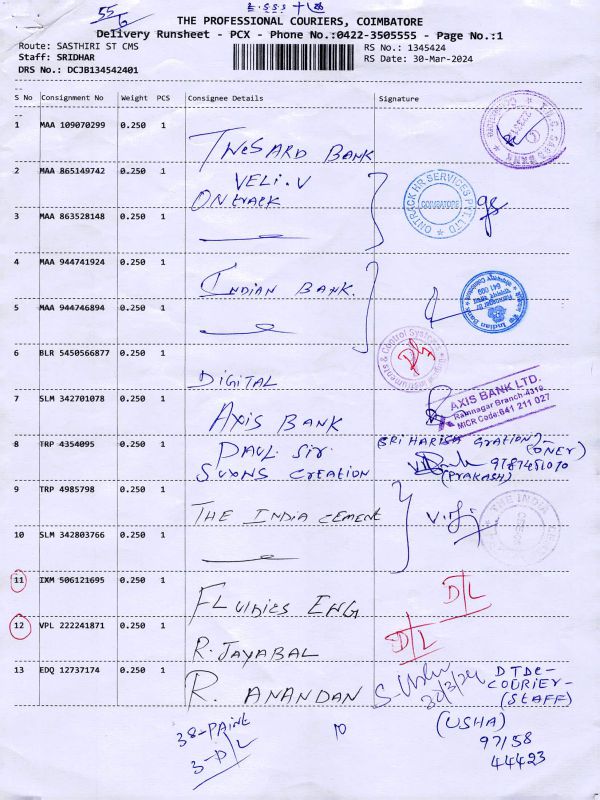 55/6
THE PROFESSIONAL COURIERS, COIMBATORE
Delivery Runsheet - PCX - Phone No.:0422-3505555 - Page No.:1
Route: SASTHIRI ST CMS
RS No.: 1345424
Staff: SRIDHAR
RS Date: 30-Mar-2024
DRS No.: DCJB134542401
S No Consignment No Weight PCS Consignee Details Signature
1 MAA 109070299 0.250 1
BANK
2 MAA 865149742 0.250 1 VELI.V
ONtrack
ONTRACK HR SERVICES PVT. LTD
COIMBATORE
3 MAA 863528148 0.250 1
4 MAA 944741924 0.250 1 INDIAN BANK.
5 MAA 944746894 0.250 1
6 BLR 5450566877 0.250 1 DIGITAL
Instruments & Control Systems
7 SLM 342701078 0.250 1 AXIS BANK
AXIS BANK LTD.
Ramnagar Branch-4319
MICR Code:641 211 027
8 TRP 4354095 0.250 1 PAUL Sir.
SUXNS CREATION
SRI HARISH
(PRAKASH)
9 TRP 4985798 0.250 1 THE INDIA CEMENT
10 SLM 342803766 0.250 1
11 IXM 506121695 0.250 1 FLUIDICS ENG D/L
12 VPL 222241871 0.250 1 R. JAYABAL D/L
13 EDQ 12737174 0.250 1 R. ANANDAN
30/3/24
DTDC-
COURIER-
(STAFF)
(USHA)
97158
44423
38-PAINT
3-D/L
10